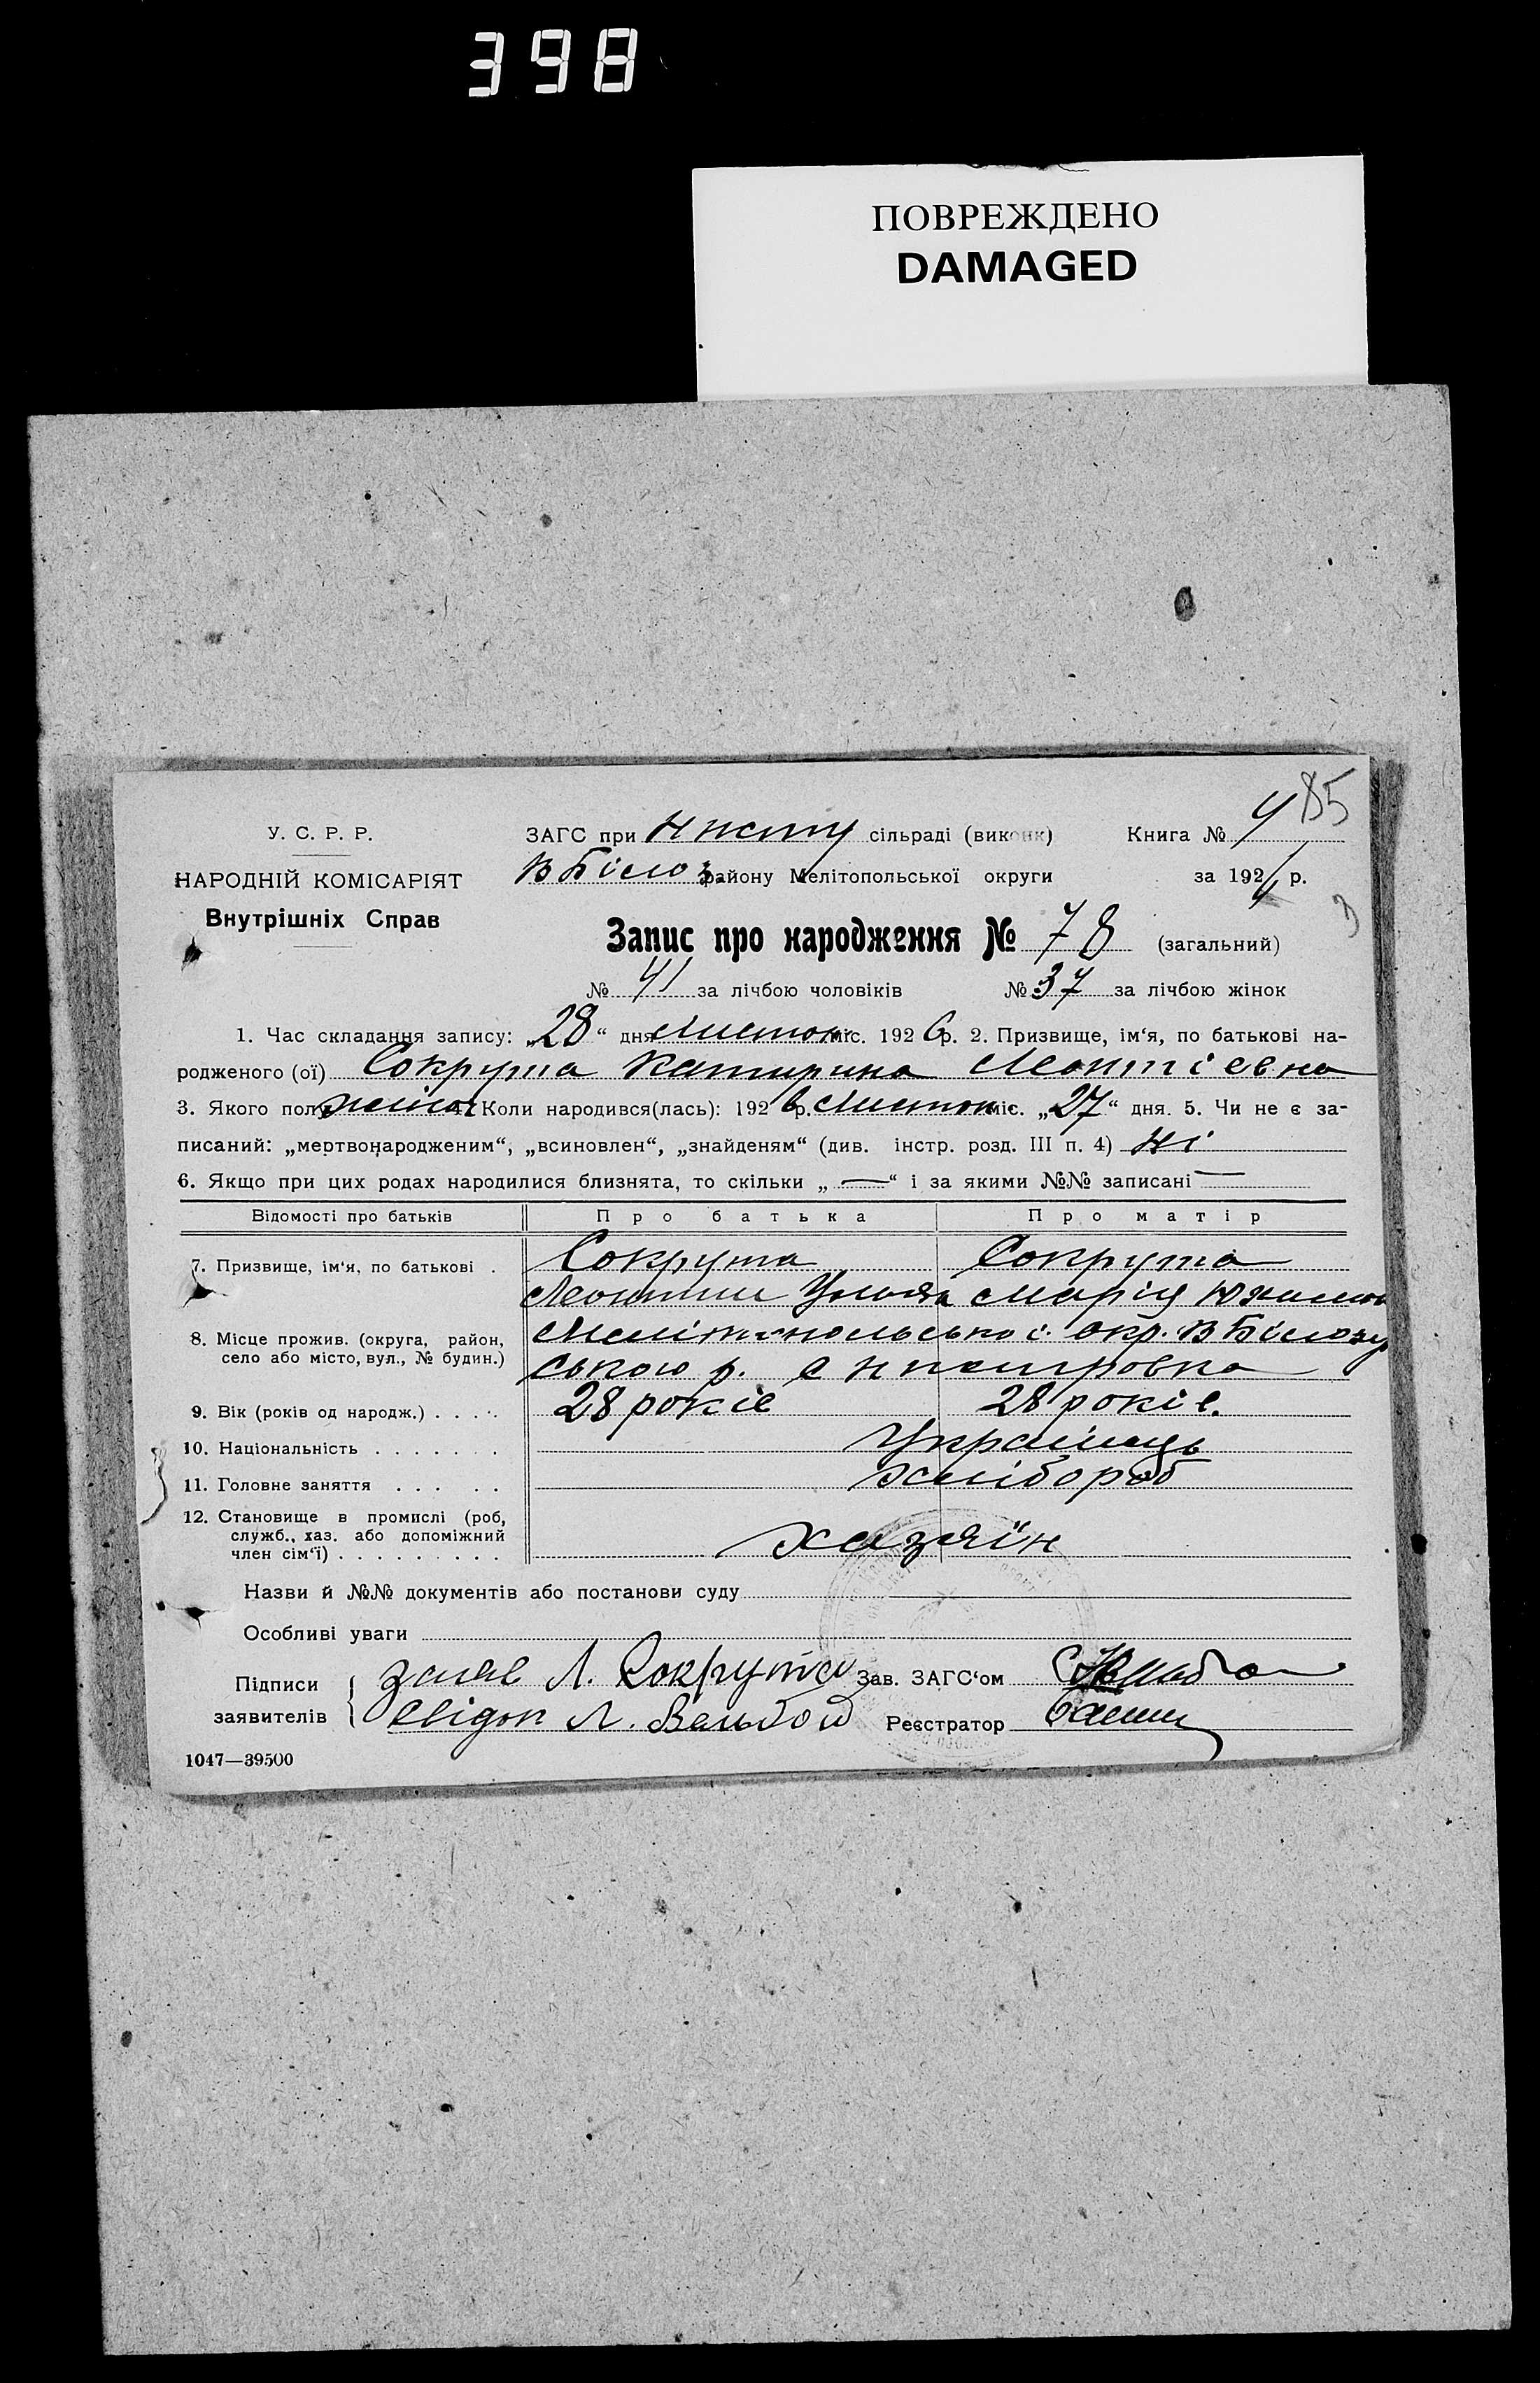 398
ПОВРЕЖДЕНО
DAMAGED
485
У. С. Р. Р.
ЗАГС при сільраді (виконк) Книга №
НАРОДНІЙ КОМІСАРІЯТ
В Білоз. району Мелітопольської округи за 192 р.
Внутрішніх Справ
Запис про народження № 78 (загальний)
№ 41 за лічбою чоловіків № 37 за лічбою жінок
1. Час складання запису: „28“ дня Листоп міс. 192 6 р. 2. Призвище, ім‘я, по батькові на-
родженого (ої) Сокрута Катирина Леонтіевна
3. Якого полу 4. Коли народився(лась): 192 6 р. Листоп. міс. „27“ дня. 5. Чи не є за-
писаний: „мертвонародженим“, „всиновлен“, „знайденям“ (див. інстр. розд. III п. 4) Ні
6. Якщо при цих родах народилися близнята, то скільки „—“ і за якими №№ записані —
Відомості про батьків Про батька Про матір
7. Призвище, ім‘я, по батькові . Сокрута Сокрута
Леонтии Ульян Марія
8. Місце прожив. (округа, район, Мелітопольської окр. В Білозер
село або місто, вул., № будин.) ського р.
9. Вік (років од народж.) . . . . 28 років 28 років.
10. Національність . . . . . . . Українць
11. Головне заняття . . . . . хлібороб
12. Становище в промислі (роб,
служб., хаз. або допоміжний
член сім‘ї) . . . . . . . . . хазяїн
Назви й №№ документів або постанови суду
Особливі уваги
Підписи заяв Л. Сокрута Зав. ЗАГС‘ом
заявителів Свідок Л. Реєстратор
1047—39500